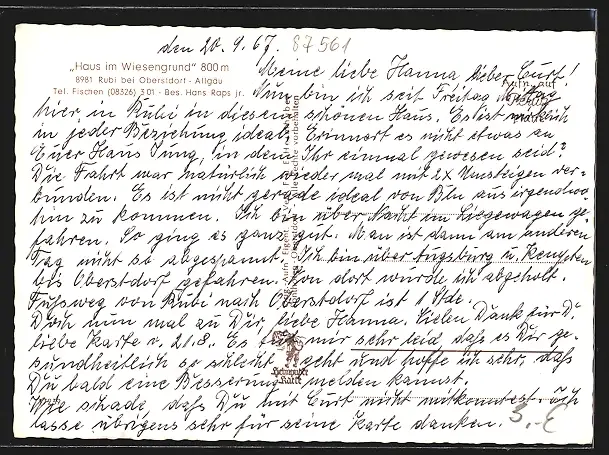 den 20.9.67. 87561
„Haus im Wiesengrund" 800 m
8981 Rubi bei Oberstdorf - Allgäu
Tel. Fischen (08326) 3 01 - Bes. Hans Raps jr.
Meine liebe Hanna lieber Curt!
Nun bin ich seit Freitag
hier, in Rubi in diesem schönen Haus. Es ist wirklich
in jeder Beziehung ideal. Erinnert es nicht etwas an
Euer Haus Jung, in dem Ihr einmal gewesen seid?
Die Fahrt war natürlich wieder mal mit 2x Umsteigen ver-
bunden. Es ist nicht gerade ideal von Bln aus irgendwo
hin zu kommen. Ich bin über Nacht im Liegewagen ge-
fahren. So ging es ganz gut. Man ist dann am anderen
Tag nicht so abgespannt. Ich bin über Augsburg u. Kempten
bis Oberstdorf gefahren. Von dort wurde ich abgeholt.
Fußweg von Rubi nach Oberstdorf ist 1 Stde.
Doch nun mal zu Dir, liebe Hanna. Vielen Dank für D.
liebe Karte v. 21.8. Es tut mir sehr leid, daß es Dir ge-
sundheitlich so schlecht geht und hoffe ich sehr, daß
Du bald eine Besserung melden kannst.
Wie schade, daß Du mit Curt nicht mitkonntest. Ich
lasse übrigens sehr für seine Karte danken.
3,-€